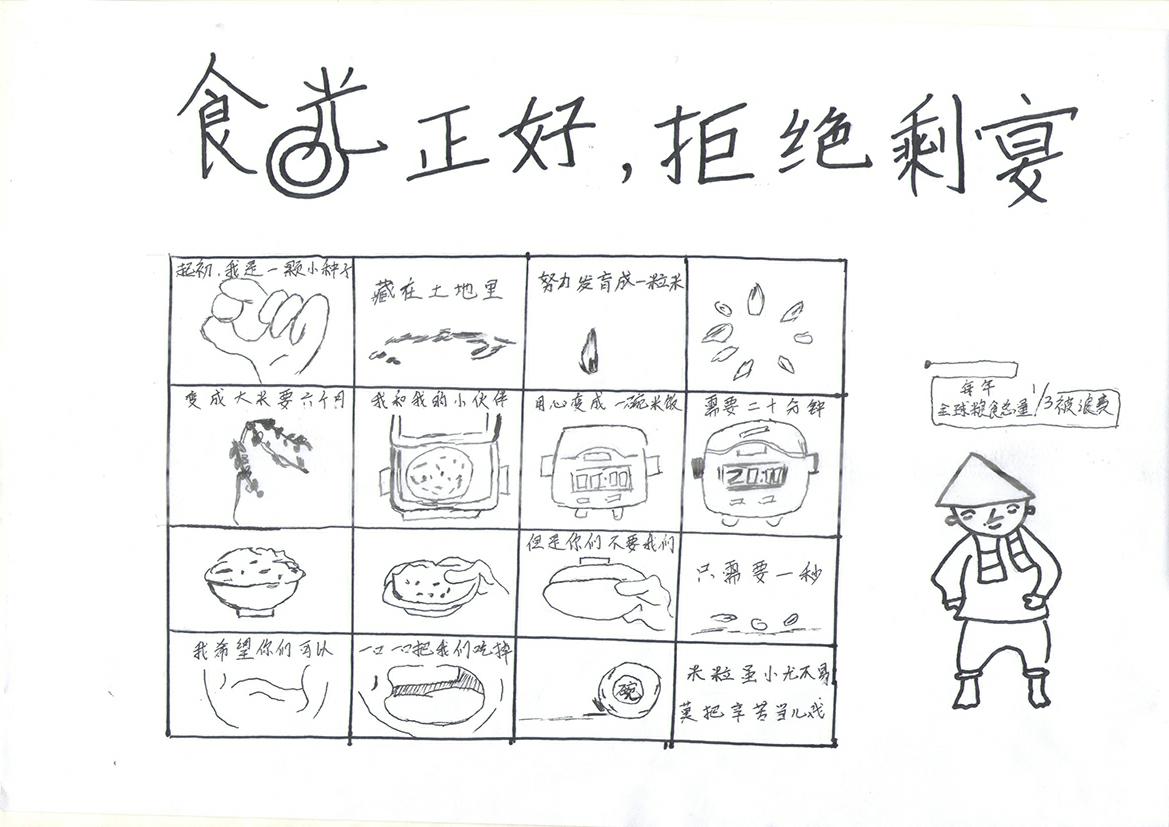 食光正好，拒绝剩宴
起初，我是一颗小种子
藏在土地里
努力发育成一粒米
变成大米要六个月
我和我的小伙伴
用心变成一碗米饭
00:00
需要二十分钟
20:00
但是你们不要我们
只需要一秒
我希望你们可以
一口一口把我们吃掉
碗
米粒虽小尤不易
莫把辛苦当儿戏
每年
全球粮食总量1/3被浪费